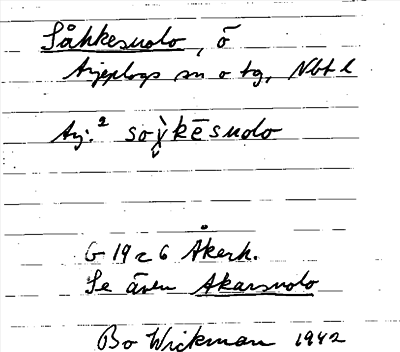 Såhkesuolo, ö
Arjeplogs sn o tg, Nbt l
Arj:² so
G 19 c 6 Åkerh.
Se även Akarsuolo
Bo Wickman 1942